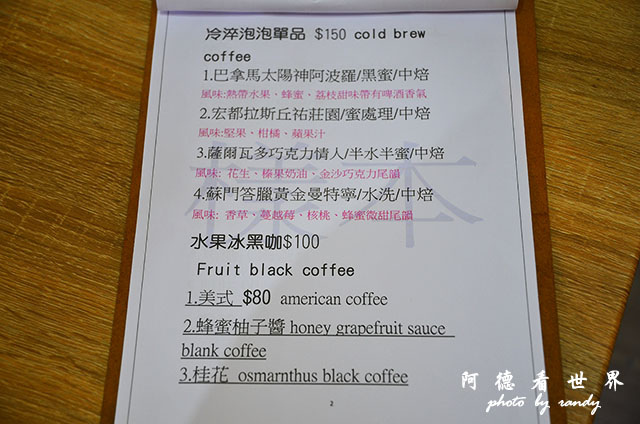 冷淬泡泡單品 $150 cold brew
coffee
1.巴拿馬太陽神阿波羅/黑蜜/中焙
風味:熱帶水果、蜂蜜、荔枝甜味帶有啤酒香氣
2.宏都拉斯丘祐莊園/蜜處理/中焙
風味:堅果、柑橘、蘋果汁
3.薩爾瓦多巧克力情人/半水半蜜/中焙
風味: 花生、榛果奶油、金沙巧克力尾韻
4.蘇門答臘黃金曼特寧/水洗/中焙
風味: 香草、蔓越莓、核桃、蜂蜜微甜尾韻
樣本
水果冰黑咖$100
Fruit black coffee
1.美式 $80 american coffee
2.蜂蜜柚子醬 honey grapefruit sauce
blank coffee
3.桂花 osmarnthus black coffee
2
阿德看世界
photo by randy